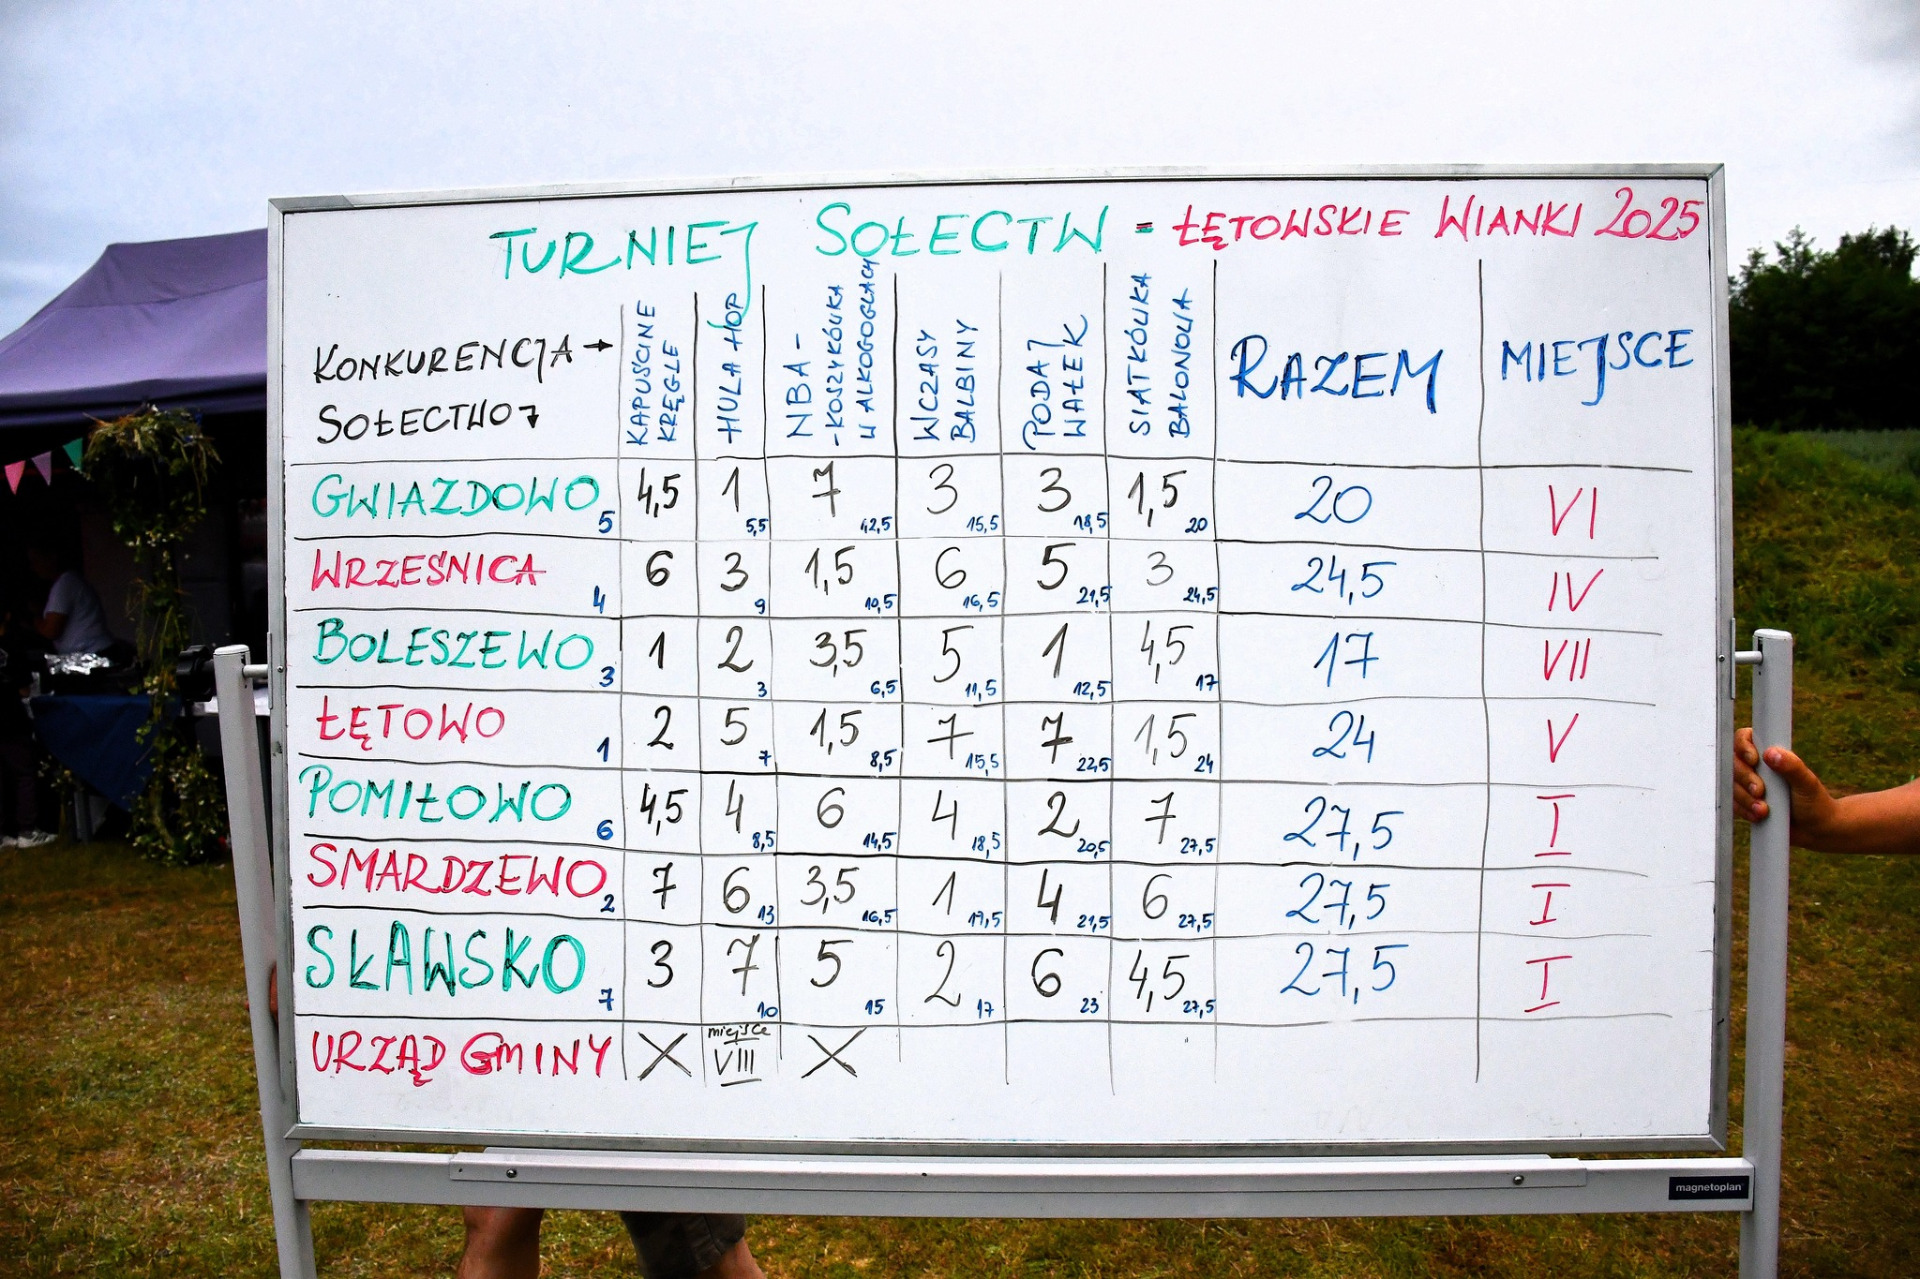 TURNIEJ SOŁECTW - ŁĘTOWSKIE WIANKI 2025
KONKURENCJA →
SOŁECTWO
KAPUŚCINE KRĘGLE
HULA HOP
NBA - KOSZYKÓWKA W ALKOGOGLACH
WCZASY BALBINY
PODAJ WAŁEK
SIATKÓWKA BALONOWA
RAZEM
MIEJSCE
GWIAZDOWO 5 4,5 1 5,5 7 12,5 3 15,5 3 18,5 1,5 20 20 VI
WRZEŚNICA 4 6 3 9 1,5 10,5 6 16,5 5 21,5 3 24,5 24,5 IV
BOLESZEWO 3 1 2 3 3,5 6,5 5 11,5 1 12,5 4,5 17 17 VII
ŁĘTOWO 1 2 5 7 1,5 8,5 7 15,5 7 22,5 1,5 24 24 V
POMIŁOWO 6 4,5 4 8,5 6 14,5 4 18,5 2 20,5 7 27,5 27,5 I
SMARDZEWO 2 7 6 13 3,5 16,5 1 17,5 4 21,5 6 27,5 27,5 I
SŁAWSKO 7 3 7 10 5 15 2 17 6 23 4,5 27,5 27,5 I
URZĄD GMINY X miejsce VIII X
magnetoplan